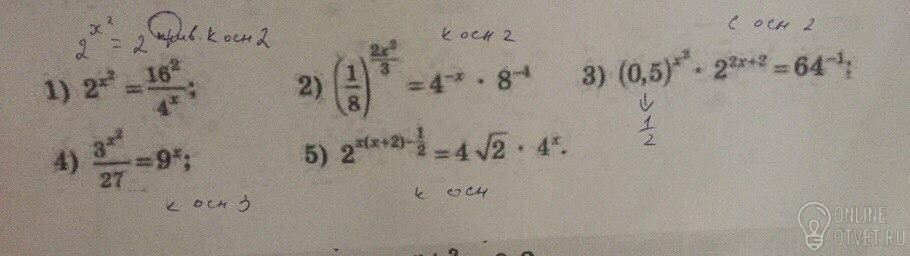 2^x² = 2 прив. к осн 2
к осн 2
с осн 2
1) 2^{x²} = 16²/4^x;
2) (1/8)^{2x²/3} = 4^{-x} · 8^{-4}
3) (0,5)^{x²} · 2^{2x+2} = 64^{-1};
1/2
4) 3^{x²}/27 = 9^x;
5) 2^{x(x+2)-1/2} = 4√2 · 4^x.
к осн 3
к осн
ONLINE
OTVET.RU